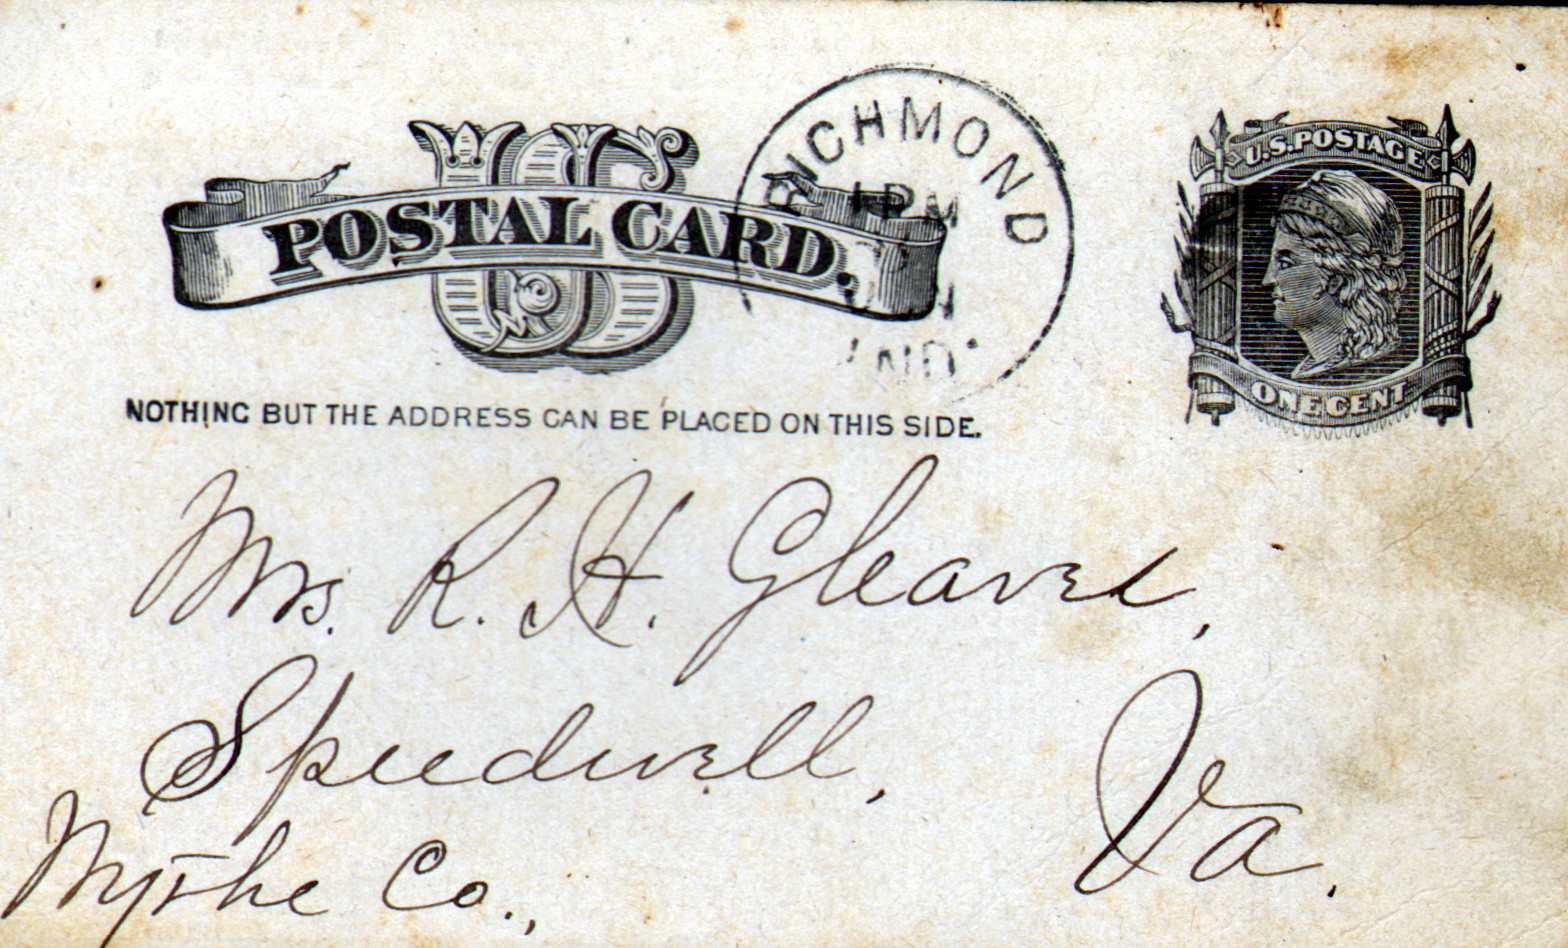 US
POSTAL CARD.
RICHMOND
1 PM
IND.
U.S. POSTAGE
ONE CENT
NOTHING BUT THE ADDRESS CAN BE PLACED ON THIS SIDE.
Mrs. R. H. Gleaves,
Speedwell,
Wythe Co., Va.